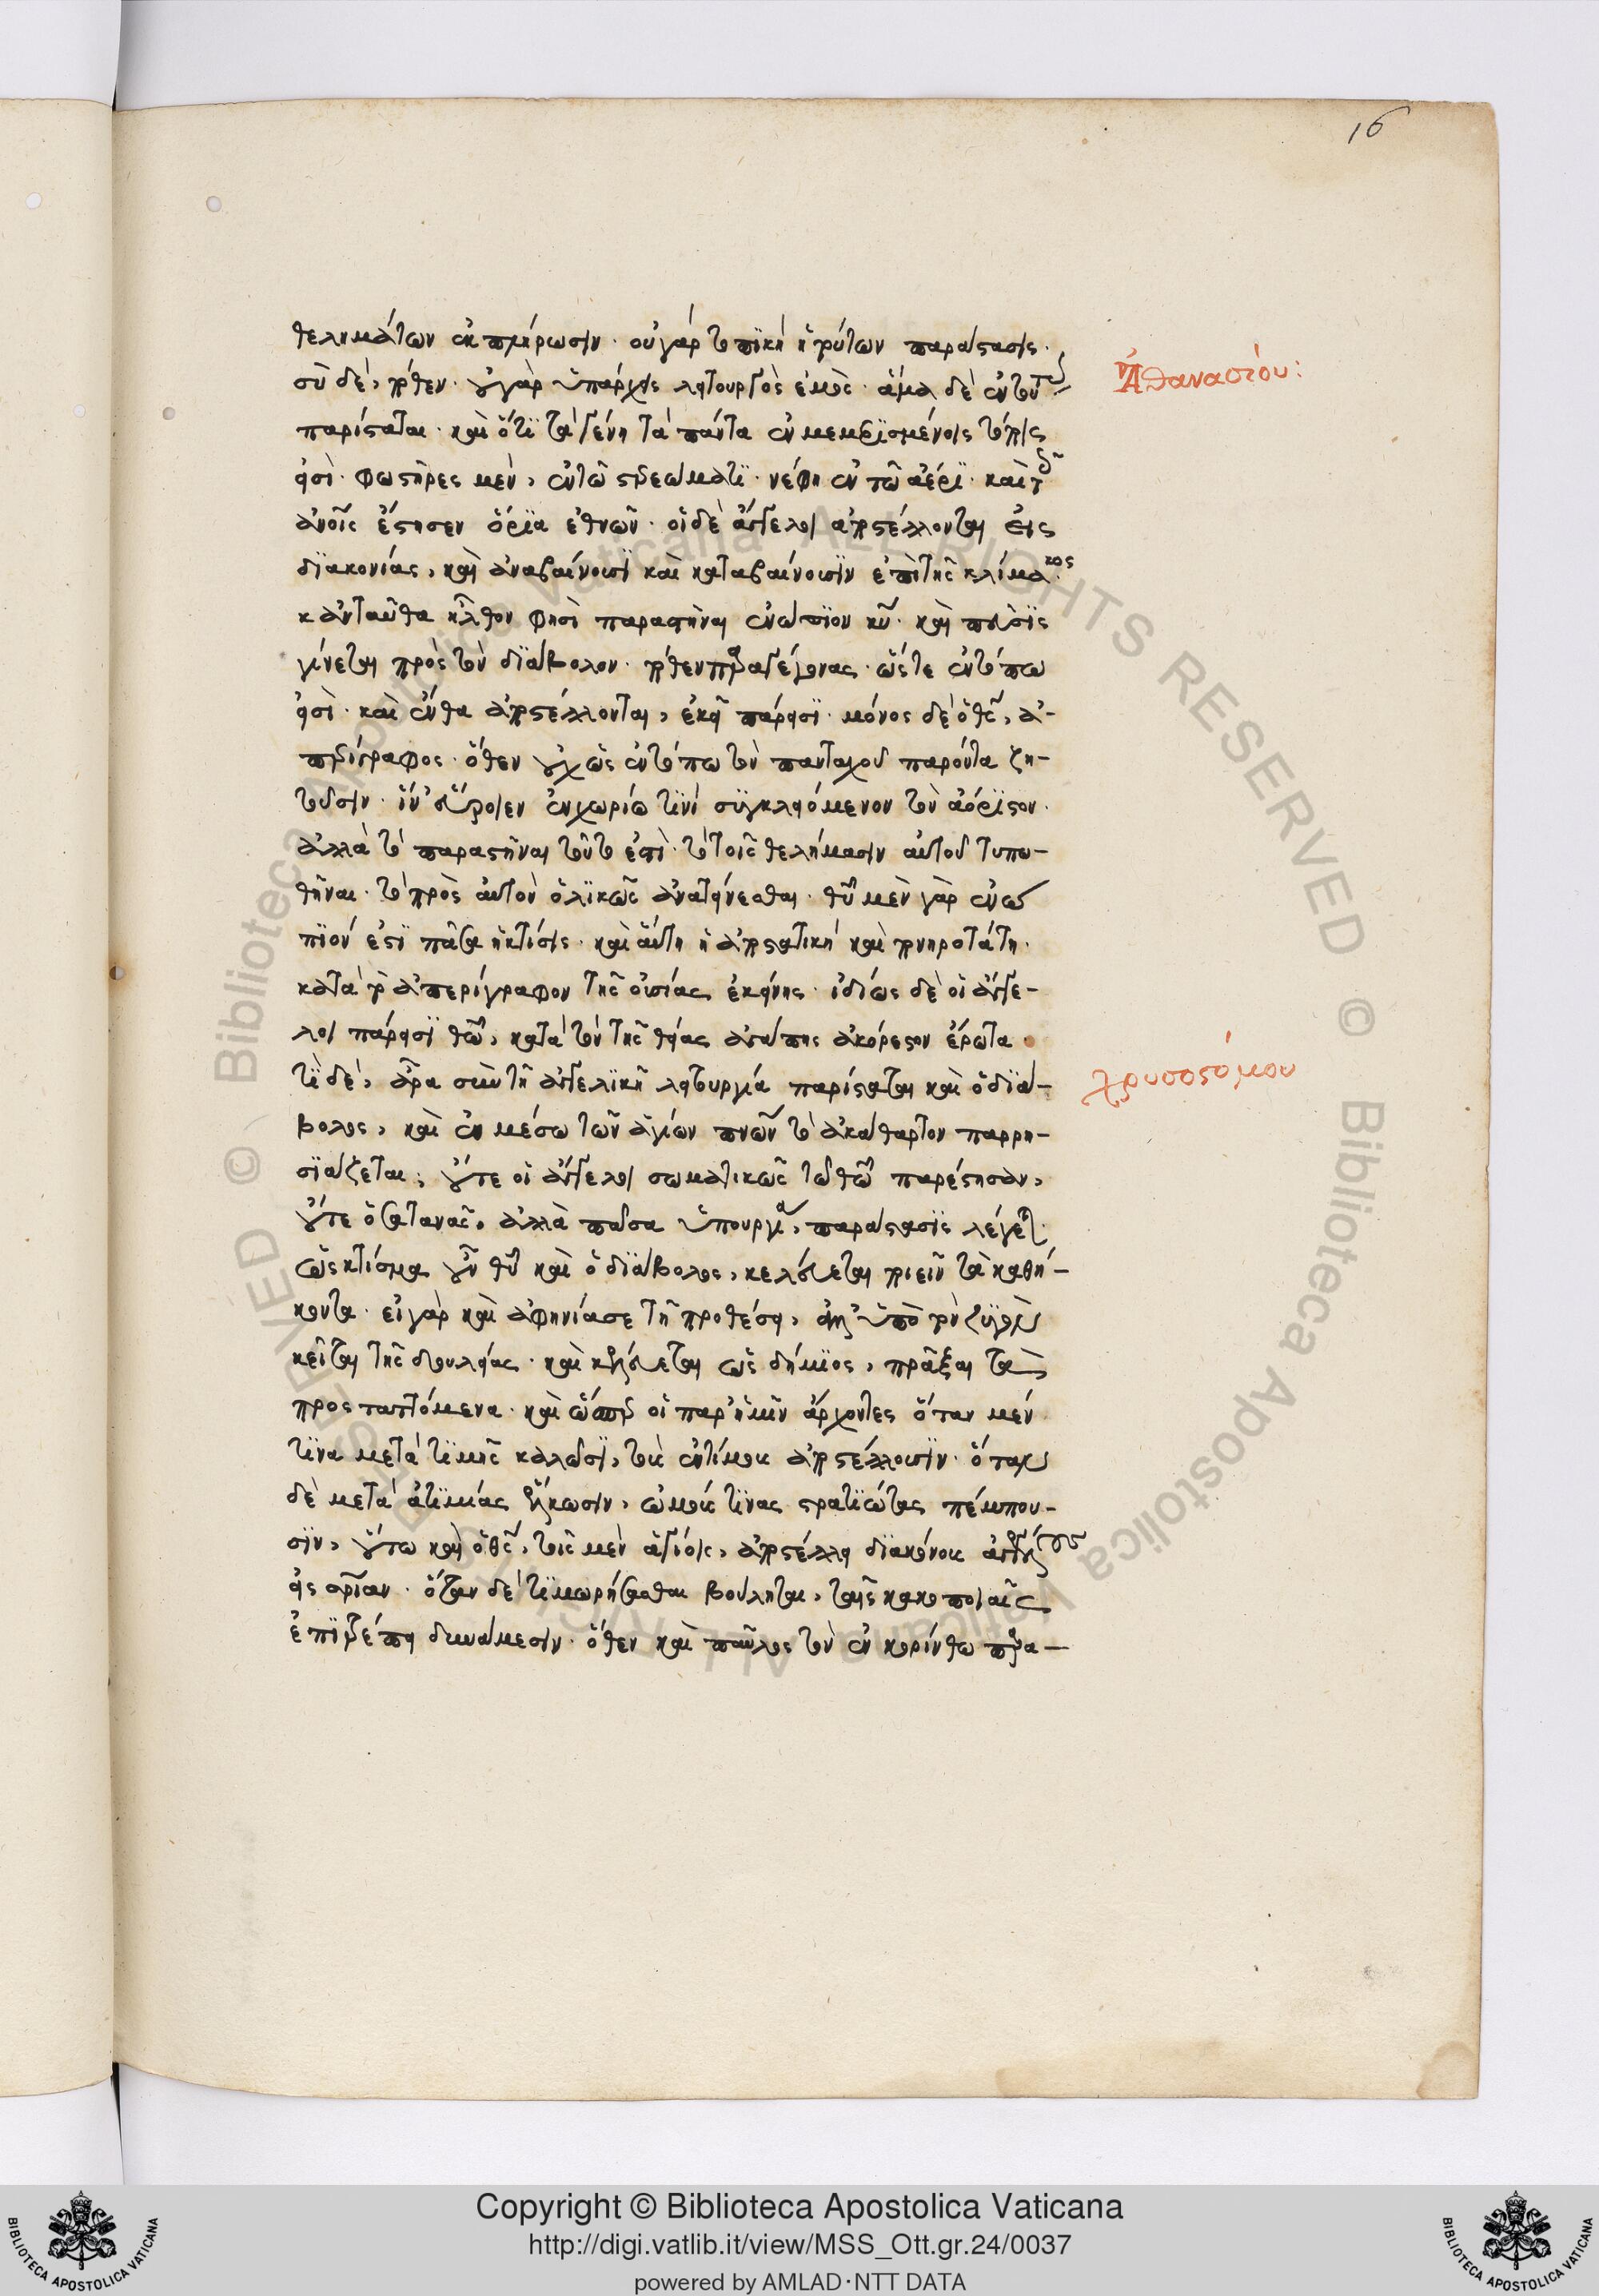 16
θελημάτων ἐκπλήρωσιν· οὐ γὰρ τοπικὴ ἡ τούτων παράστασις·
Ἀθανασίου:
σὺ δὲ, πόθεν· οὐ γὰρ ὑπάρχεις λειτουργὸς ἐμός· ἅμα δὲ
παρίσταται καὶ ὅτι τὰ γένη τὰ πάντα ἐν μεμερισμένοις τόποις
εἰσί· φωστῆρες μὲν, ἐν τῶ στερεώματι· νέφη ἐν τῶ ἀέρι· καὶ τ
ἀνοις ἔστησεν ὅρια ἐθνῶν· οἱ δὲ ἄγγελοι ἀποστέλλονται εἰς
διακονίας, καὶ ἀναβαίνουσι καὶ καταβαίνουσιν ἐπὶ τῆς κλίμακος
κἀνταῦθα ἦλθον φησὶ παραστῆναι ἐνώπιον κυ· καὶ πεῦσις
γίνεται πρὸς τὸν διάβολον· πόθεν παραγέγονας· ὥστε ἐν τόπω
εἰσὶ· καὶ ἔνθα ἀποστέλλονται, ἐκεῖ πάρεισι· μόνος δὲ ὁ θς, ἀ-
περίγραφος· ὅθεν οὐχ ὡς ἐν τόπω τὸν πανταχοῦ παρόντα ζη-
τοῦσιν· ἵν' εὕροιεν ἐν χωρίω τινὶ συγκλειόμενον τὸν ἀόριστον·
ἀλλὰ τὸ παραστῆναι τοῦτό ἐστι· τὸ τοῖς θελήμασιν αὐτοῦ τυπω-
θῆναι· τὸ πρὸς αὐτὸν ὁλικῶς ἀνατείνεσθαι· θυ μὲν γὰρ ἐνώ
πιόν ἐστι πᾶσα ἡ κτίσις· καὶ αὕτη ἡ ἀποστατικὴ καὶ πονηροτάτη·
κατὰ τὸ ἀπερίγραφον τῆς οὐσίας ἐκείνης· ἰδίως δὲ οἱ ἄγγε-
λοι πάρεισι θω, κατὰ τὸν τῆς θείας ἀγάπης ἀκόρεστον ἔρωτα
Χρυσοστόμου
τί δὲ, ἆρα σὺν τῇ ἀγγελικῇ λειτουργία παρίσταται καὶ ὁ διά-
βολος, καὶ ἐν μέσω τῶν ἁγίων πνων τὸ ἀκάθαρτον παρρη-
σιάζεται; οὔτε οἱ ἄγγελοι σωματικῶς τῶ θω παρέστησαν,
οὔτε ὁ σατανᾶς, ἀλλὰ πᾶσα ὑπουργία, παράστασις λέγεται·
ὡς κτίσμα οὖν θυ καὶ ὁ διάβολος, κελεύεται ποιεῖν τὰ καθή-
κοντα· εἰ γὰρ καὶ ἀφηνίασε τῇ προθέσει, ἀλλ' ὑπὸ τὸν ζυγὸν
κεῖται τῆς δουλείας· καὶ κελεύεται ὡς δήμιος, πρᾶξαι τὰ
προσταττόμενα· καὶ ὥσπερ οἱ παρ' ἡμῖν ἄρχοντες ὅταν μέν
τινα μετὰ τιμῆς καλῶσι, τοὺς ἐντίμους ἀποστέλλουσιν· ὅταν
δὲ μετὰ ἀτιμίας ἕλκωσιν, ὠμούς τινας στρατιώτας πέμπου-
σιν, οὕτω καὶ ὁ θς, τοῖς μὲν ἁγίοις, ἀποστέλλει διακόνους ἀγγέλους
εἰς σρίαν· ὅταν δὲ τιμωρήσασθαι βούληται, ταῖς κακοποιαῖς
ἐπιτρέπει δυνάμεσιν· ὅθεν καὶ παῦλος τὸν ἐν κορίνθω παρα-
Copyright © Biblioteca Apostolica Vaticana
http://digi.vatlib.it/view/MSS_Ott.gr.24/0037
powered by AMLAD·NTT DATA